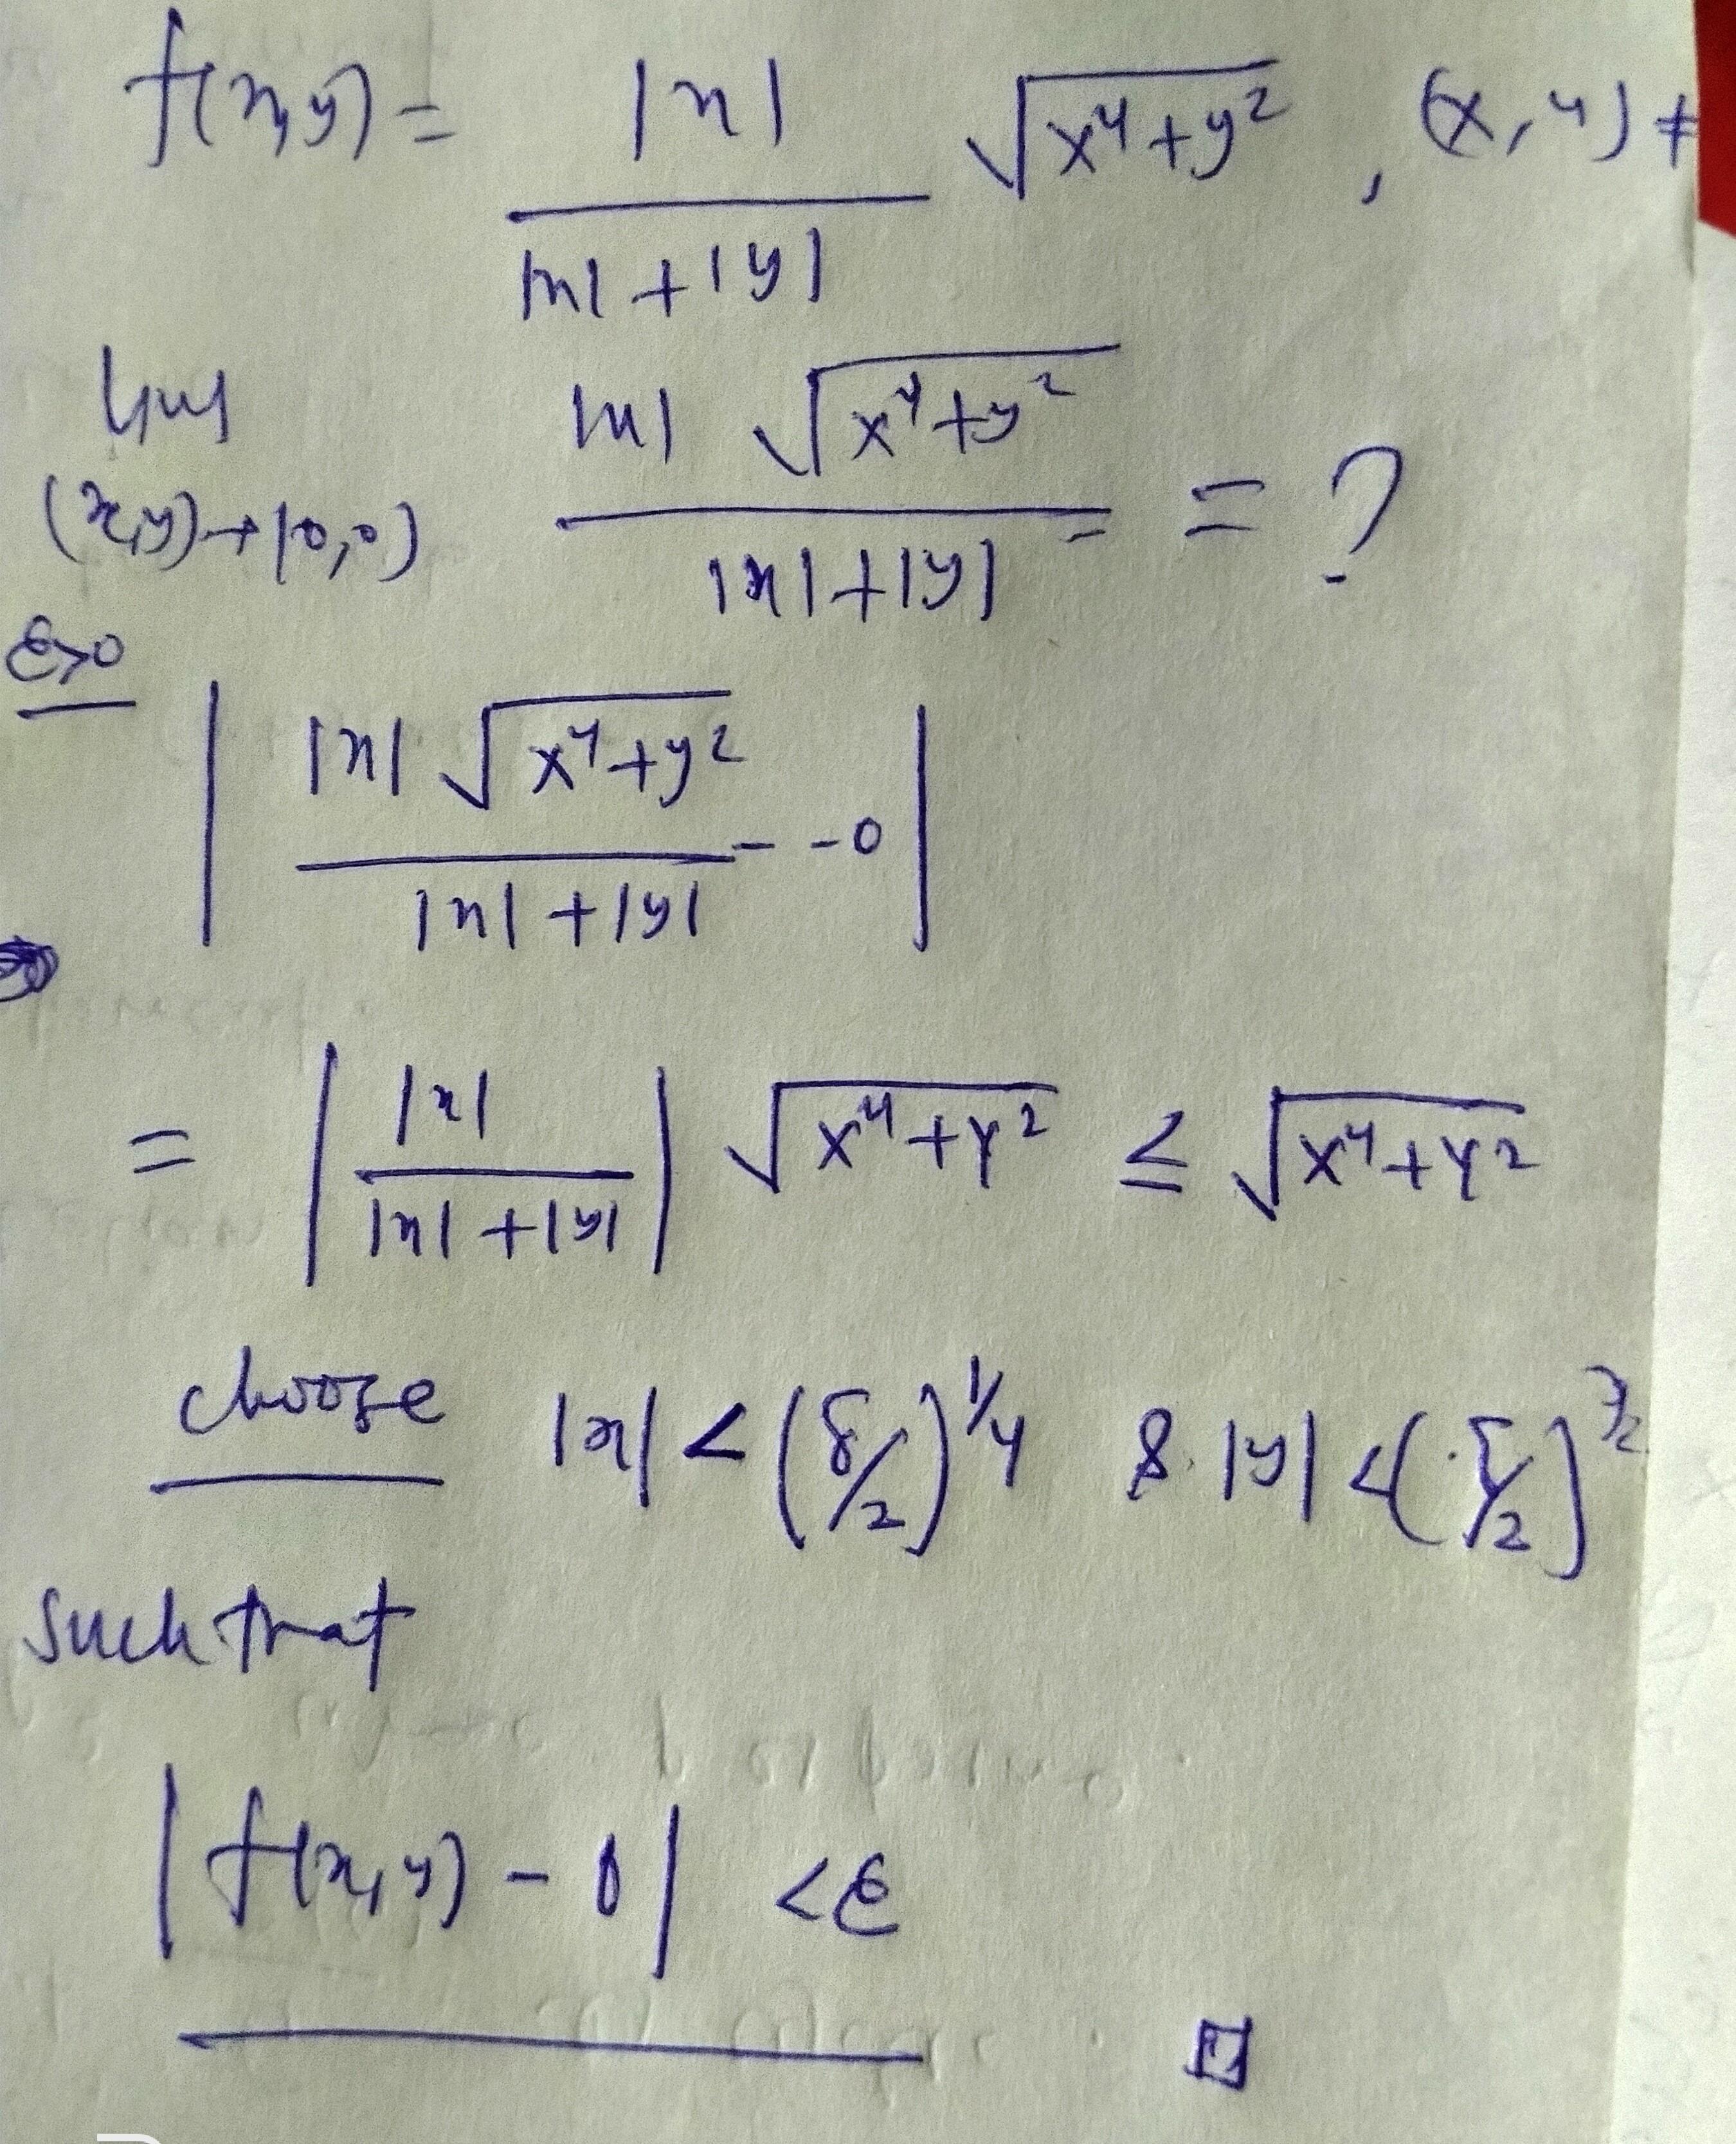 f(x,y) = |x| / (|x| + |y|) √(x⁴+y²) , (x,y) ≠
lim (x,y)→(0,0) |x| √(x⁴+y²) / (|x|+|y|) = = ?
ε>0
| |x| √(x⁴+y²) / (|x|+|y|) - - 0 |
= | |x| / (|x|+|y|) | √(x⁴+y²) ≤ √(x⁴+y²)
choose |x| < (δ/2)^1/4 & |y| < (δ/2)^1/2
such that
|f(x,y) - 0| < ε